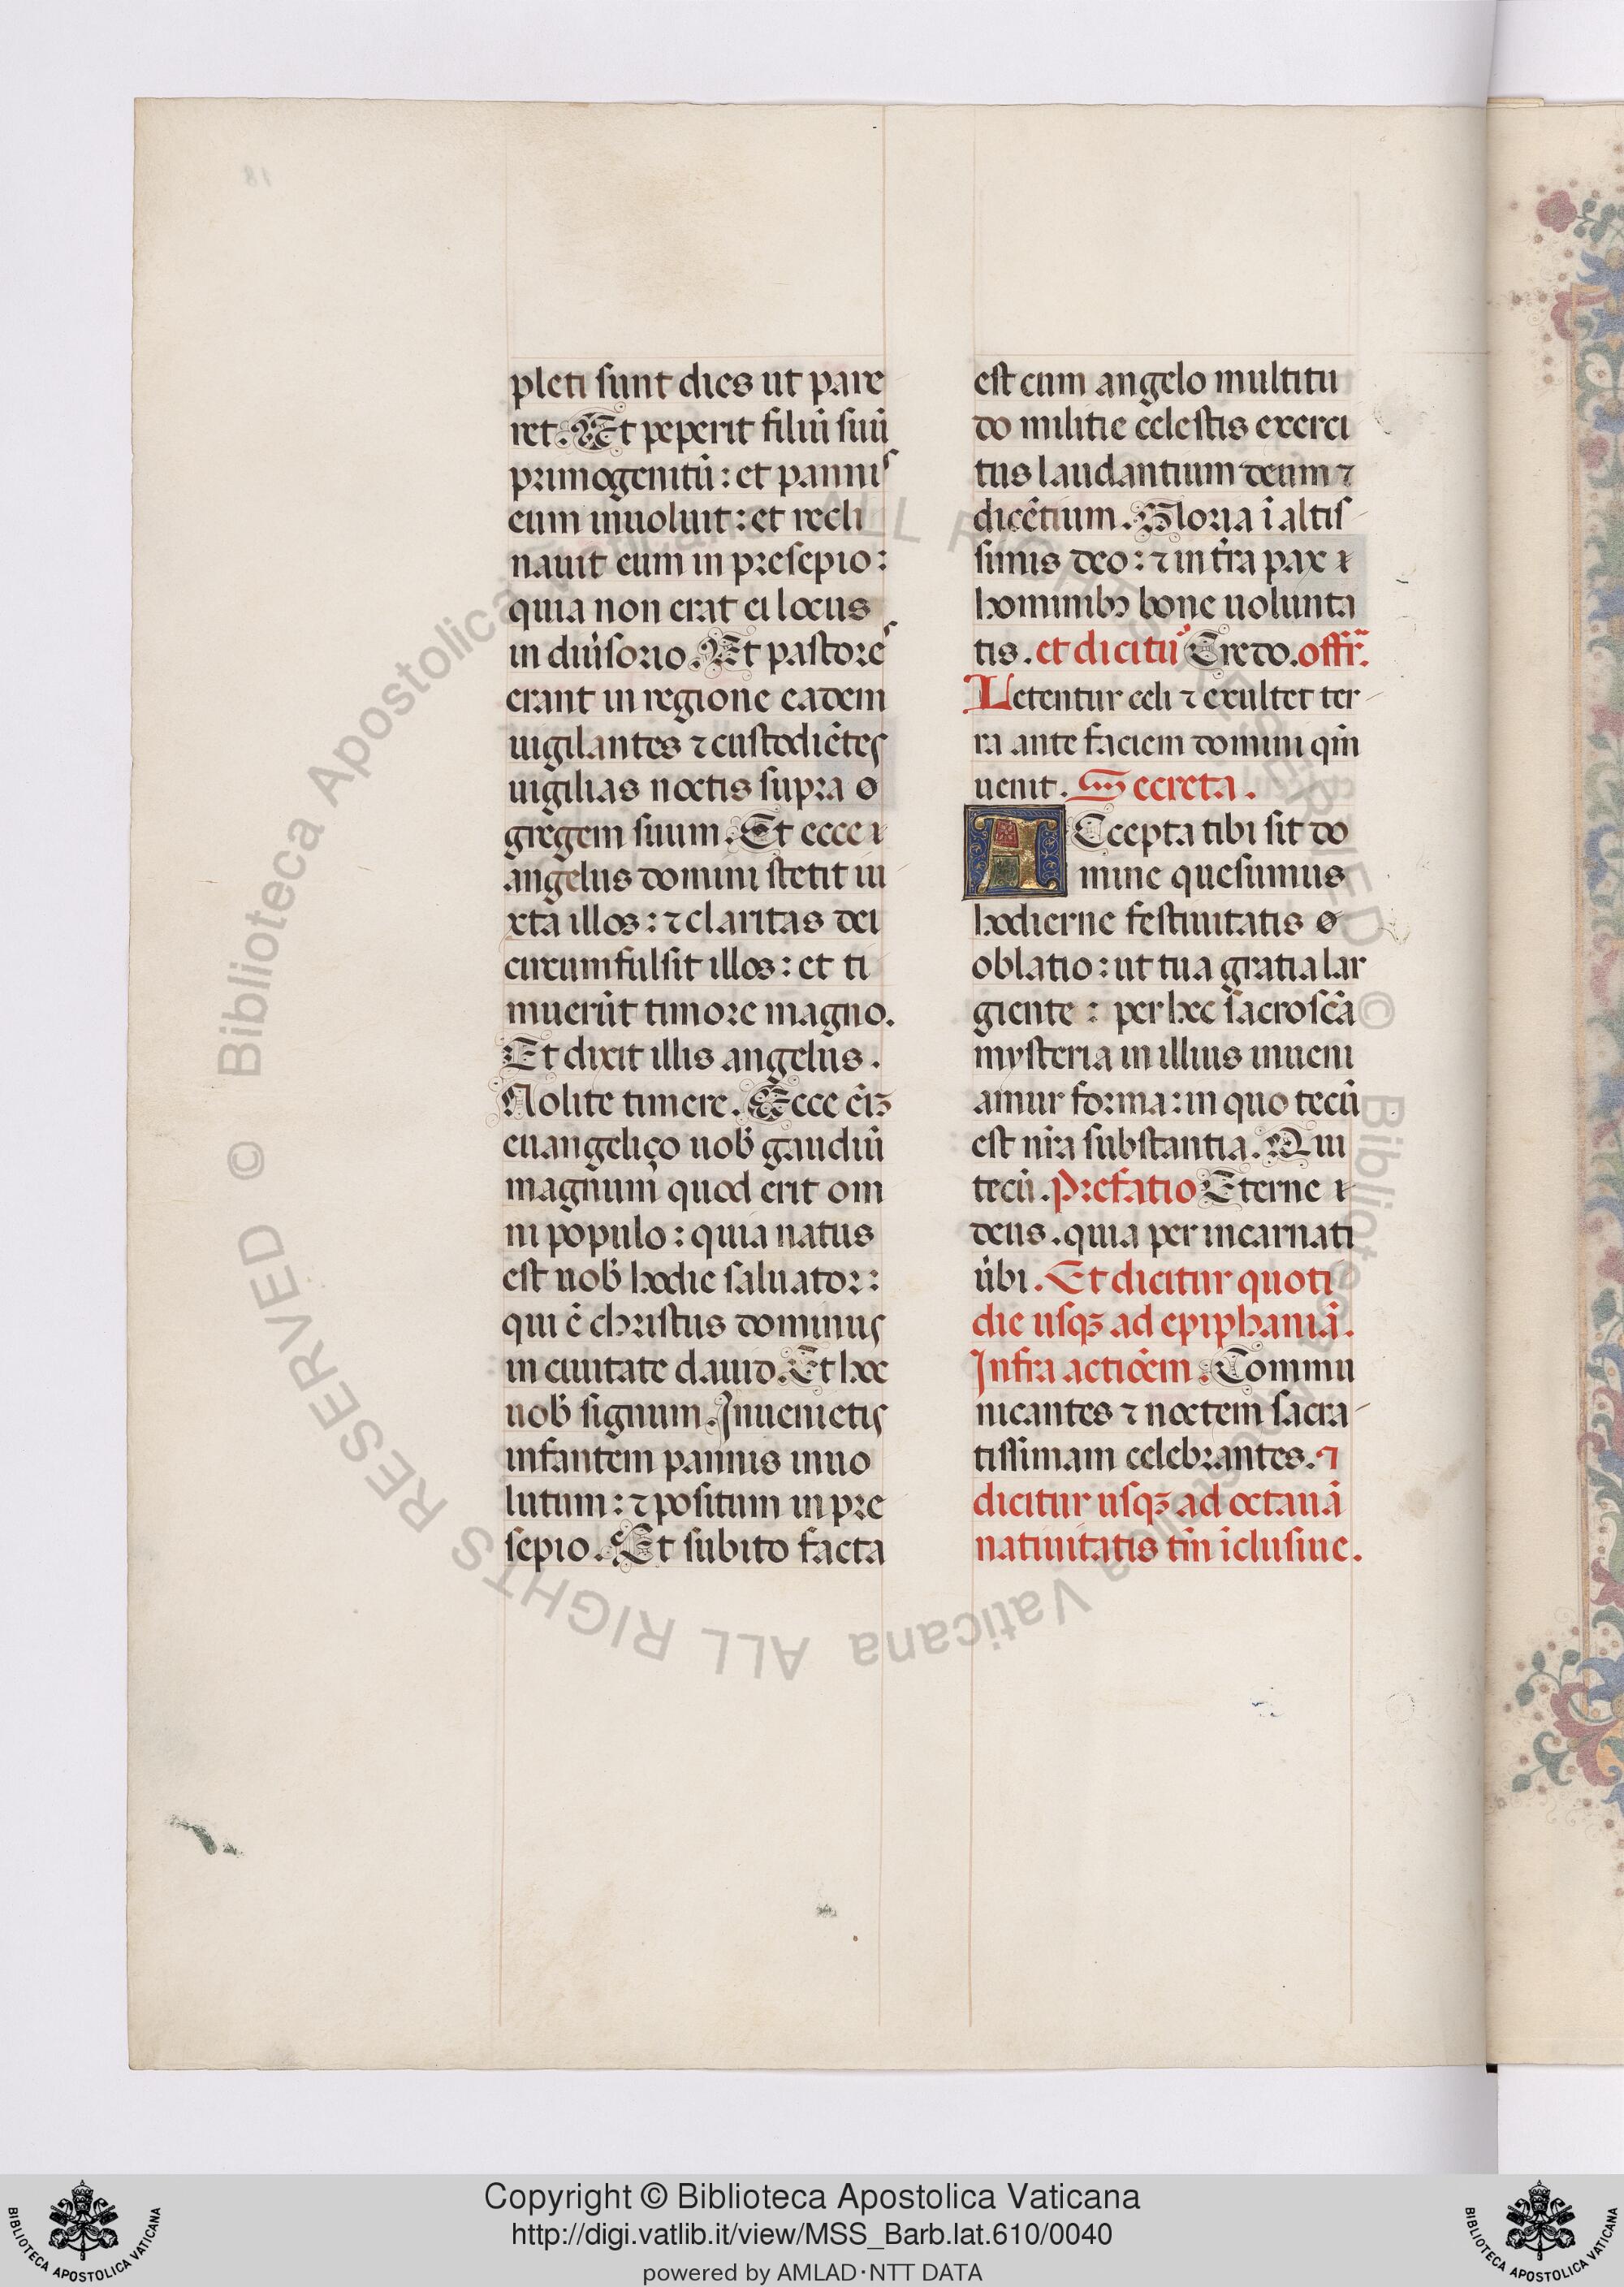 pleti sunt dies ut pare
ret. Et peperit filiū suū
primogenitū: et pannis
eum inuoluit: et recli
nauit eum in presepio:
quia non erat ei locus
in diuisorio. Et pastores
erant in regione eadem
uigilantes ⁊ custodiētes
uigilias noctis supra
gregem suum. Et ecce
angelus domini stetit iu
xta illos: ⁊ claritas dei
circumfulsit illos: et ti
muerūt timore magno.
Et dixit illis angelus.
Nolite timere. Ecce eīz
euangelico uob̄ gaudiū
magnum quod erit om
ni populo: quia natus
est uob̄ hodie saluator:
qui ē christus dominus
in ciuitate dauid. Et hoc
uob̄ signum. Inuenietis
infantem pannis inuo
lutum: ⁊ positum in pre
sepio. Et subito facta
est cum angelo multitu
do militie celestis exerci
tus laudantium deum ⁊
dicētium. Gloria ī altis
simis deo: ⁊ in tr̄a pax
hominibꝫ bone uolunta
tis. et dicitur Credo. offr̄.
Letentur celi ⁊ exultet ter
ra ante faciem domini qm̄
uenit. Secreta.
ACcepta tibi sit do
mine quesumus
hodierne festiuitatis
oblatio: ut tua gratia lar
giente: per hec sacrosc̄a
mysteria in illius inueni
amur forma: in quo tecū
est nr̄a substantia. Qui
tecū. Prefatio Eterne
deus. quia per incarnati
ūbi. Et dicitur quoti
die usqꝫ ad epiphaniā.
Infra actiōem. Commu
nicantes ⁊ noctem sacra
tissimam celebrantes. ⁊
dicitur usqꝫ ad octauā
natiuitatis tm̄ īclusiue.
© Biblioteca Apostolica Vaticana ALL RIGHTS RESERVED
Copyright © Biblioteca Apostolica Vaticana
http://digi.vatlib.it/view/MSS_Barb.lat.610/0040
powered by AMLAD·NTT DATA
BIBLIOTECA APOSTOLICA VATICANA
BIBLIOTECA APOSTOLICA VATICANA